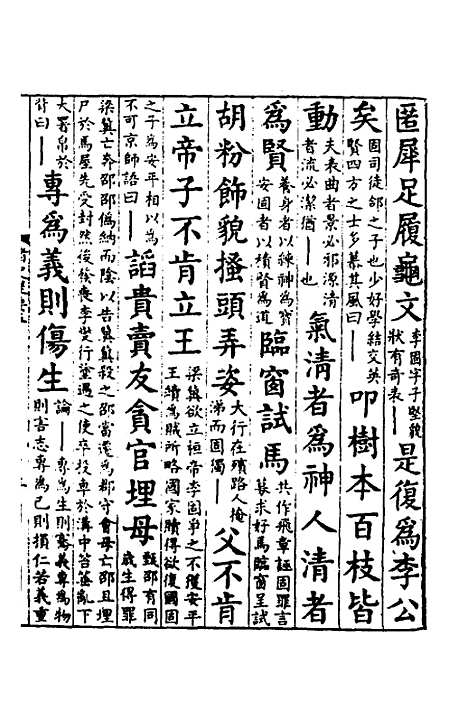 匿犀足履龜文李固字子堅貌狀有奇表——是復為李公
矣固司徒郃之子也少好學結交英賢四方之士多慕其風曰——叩樹本百枝皆
動夫表曲者景必邪源清者流必潔猶——也氣清者為神人清者
為賢養身者以練神為寶安國者以積賢為道臨窗試馬共作飛章誣固罪言募求好馬臨窗呈試
胡粉飾貌搔頭弄姿大行在殯路人掩涕而固獨——父不肯
立帝子不肯立王梁冀欲立桓帝李固爭之不獲安平王續為賊所略國家贖得欲復國固
之子為安平相以為不可京師語曰——諂貴賣友貪官埋母甄邵有同歲生得罪
梁冀亡奔邵邵偽納而陰以告冀冀殺之邵當遷為郡守會母亡邵且埋尸於馬屋先受封然後發喪李燮行塗遇之使卒投車於溝中笞箠亂下
大署帛於背曰——專為義則傷生論——專為生則騫義專為物則害志專為己則損仁若義重